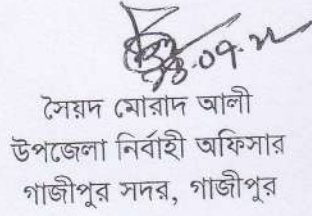 সৈয়দ মোরাদ আলী
উপজেলা নির্বাহী অফিসার
গাজীপুর সদর, গাজীপুর